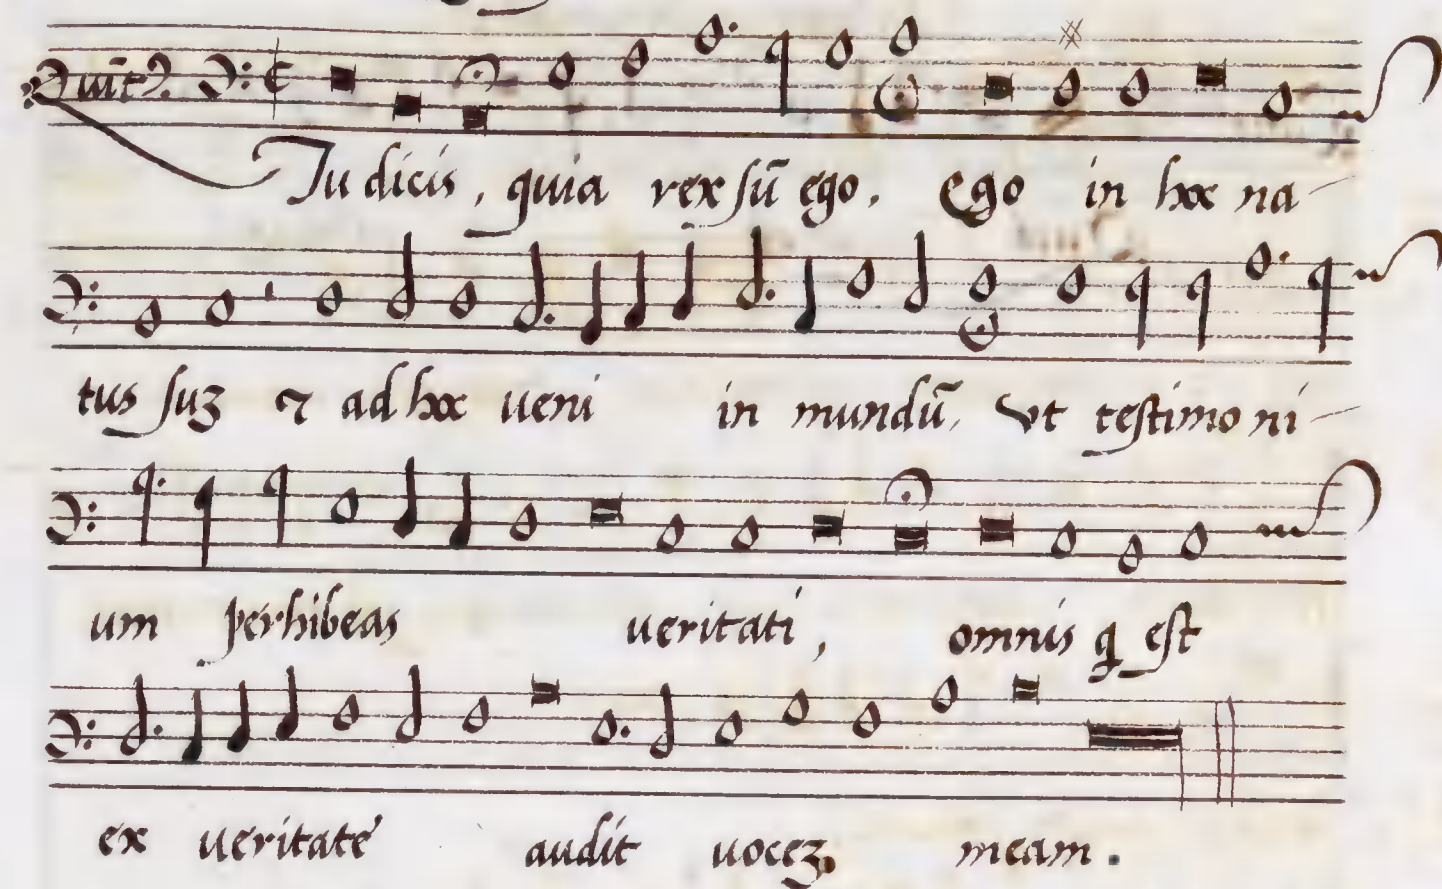 Tu dicis, quia rex sū ego. Ego in hoc na-
tus suʒ ⁊ ad hoc ueni in mundū, Vt testimoni-
um perhibeas ueritati, omnis q est
ex ueritate audit uoceʒ meam.